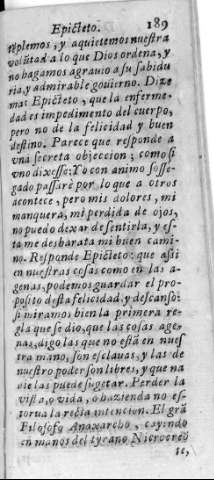 Epicteto. 189
templemos, y aquietemos nuestra
volūtad a lo que Dios ordena, y
no hagamos agrauio a su sabidu
ria, y admirable gouierno. Dize
mas Epicteto, que la enferme-
dad es impedimento del cuerpo,
pero no de la felicidad y buen
destino. Parece que responde a
vna secreta objeccion; como si
vno dixesse: Yo con animo sosse-
gado passarè por lo que a otros
acontece, pero mis dolores, mi
manquera, mi perdida de ojos,
no puedo dexar de sentirla, y es-
ta me desbarata mi buen cami-
no. Responde Epicteto: que assi
en nuestras cosas como en las a-
genas, podemos guardar el pro-
posito desta felicidad, y descanso:
si miramos bien la primera re-
gla que se dio, que las cosas age-
nas, digo las que no està en nues
tra mano, son esclauas, y las de
nuestro poder son libres, y que na
die las puede sugetar. Perder la
vista, o vida, o hazienda no es-
torua la recta intencion. El grā
Filosofo Anaxarcho, cayendo
en manos del tyrano Nicrocreō